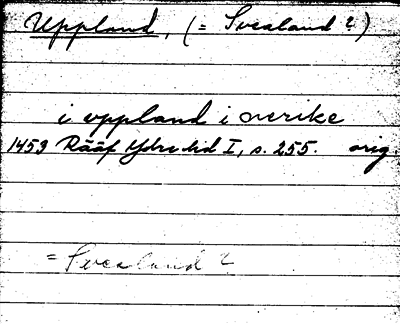 Uppland, (= Svealand?)
i vppland i swerike
1459 Rääf Ydre hd I, s. 255. orig.
= Svealand?